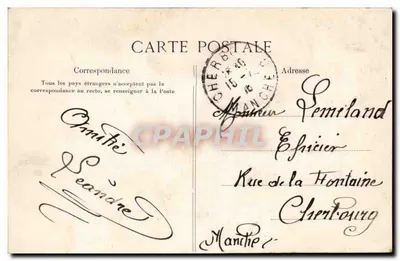 CARTE POSTALE
Correspondance
Tous les pays étrangers n'acceptent pas la
correspondance au recto, se renseigner à la Poste
Amitié
Léandre
CPHPHIL
CHERB
MANCHE
Adresse
Monsieur Lemiland
Epicier
Rue de la Fontaine
Cherbourg
Manche